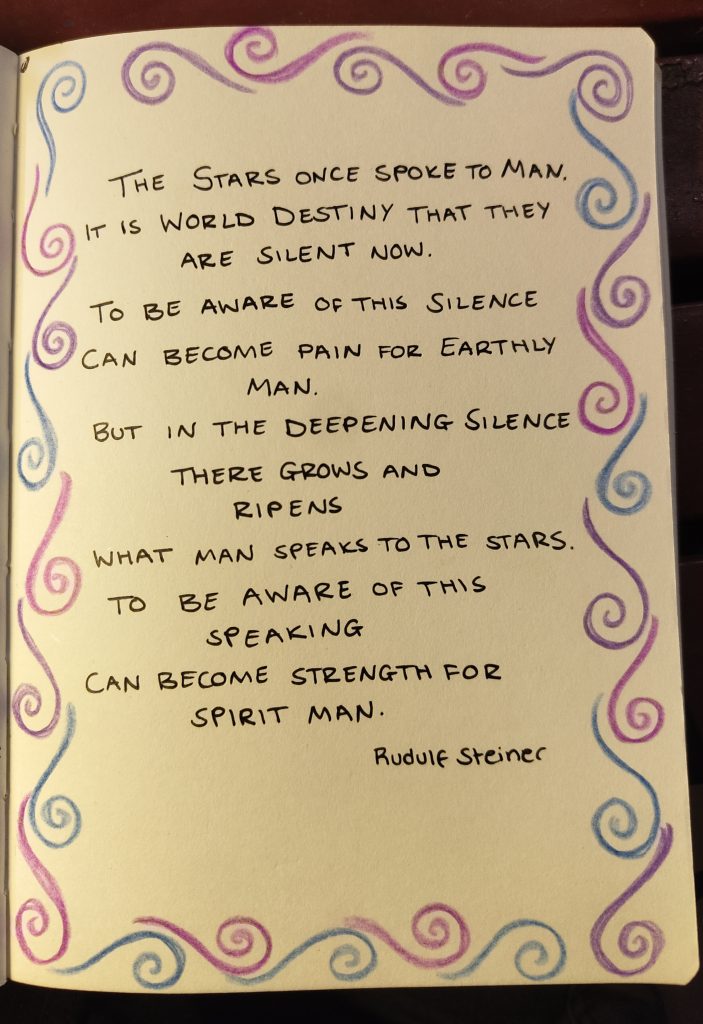 The Stars once spoke to Man.
It is World Destiny that they
are silent now.
To be aware of this silence
can become pain for Earthly
Man.
But in the deepening silence
there grows and
ripens
what Man speaks to the stars.
To be aware of this
speaking
can become strength for
Spirit Man.
Rudulf Steiner